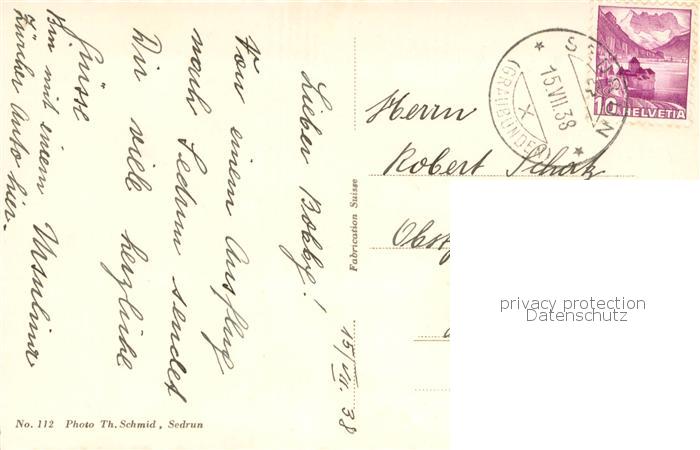 15/VII. 38
Lieber Bobby!
Von einem Ausflug
nach Sedrun sendet
Dir viele herzliche
Grüsse
Bin mit einem
Zürcher Auto hier.
Fabrication Suisse
Herrn
Robert Schatz
15.VII.38
(GRAUBÜNDEN)
10 HELVETIA
privacy protection
Datenschutz
No. 112 Photo Th. Schmid, Sedrun